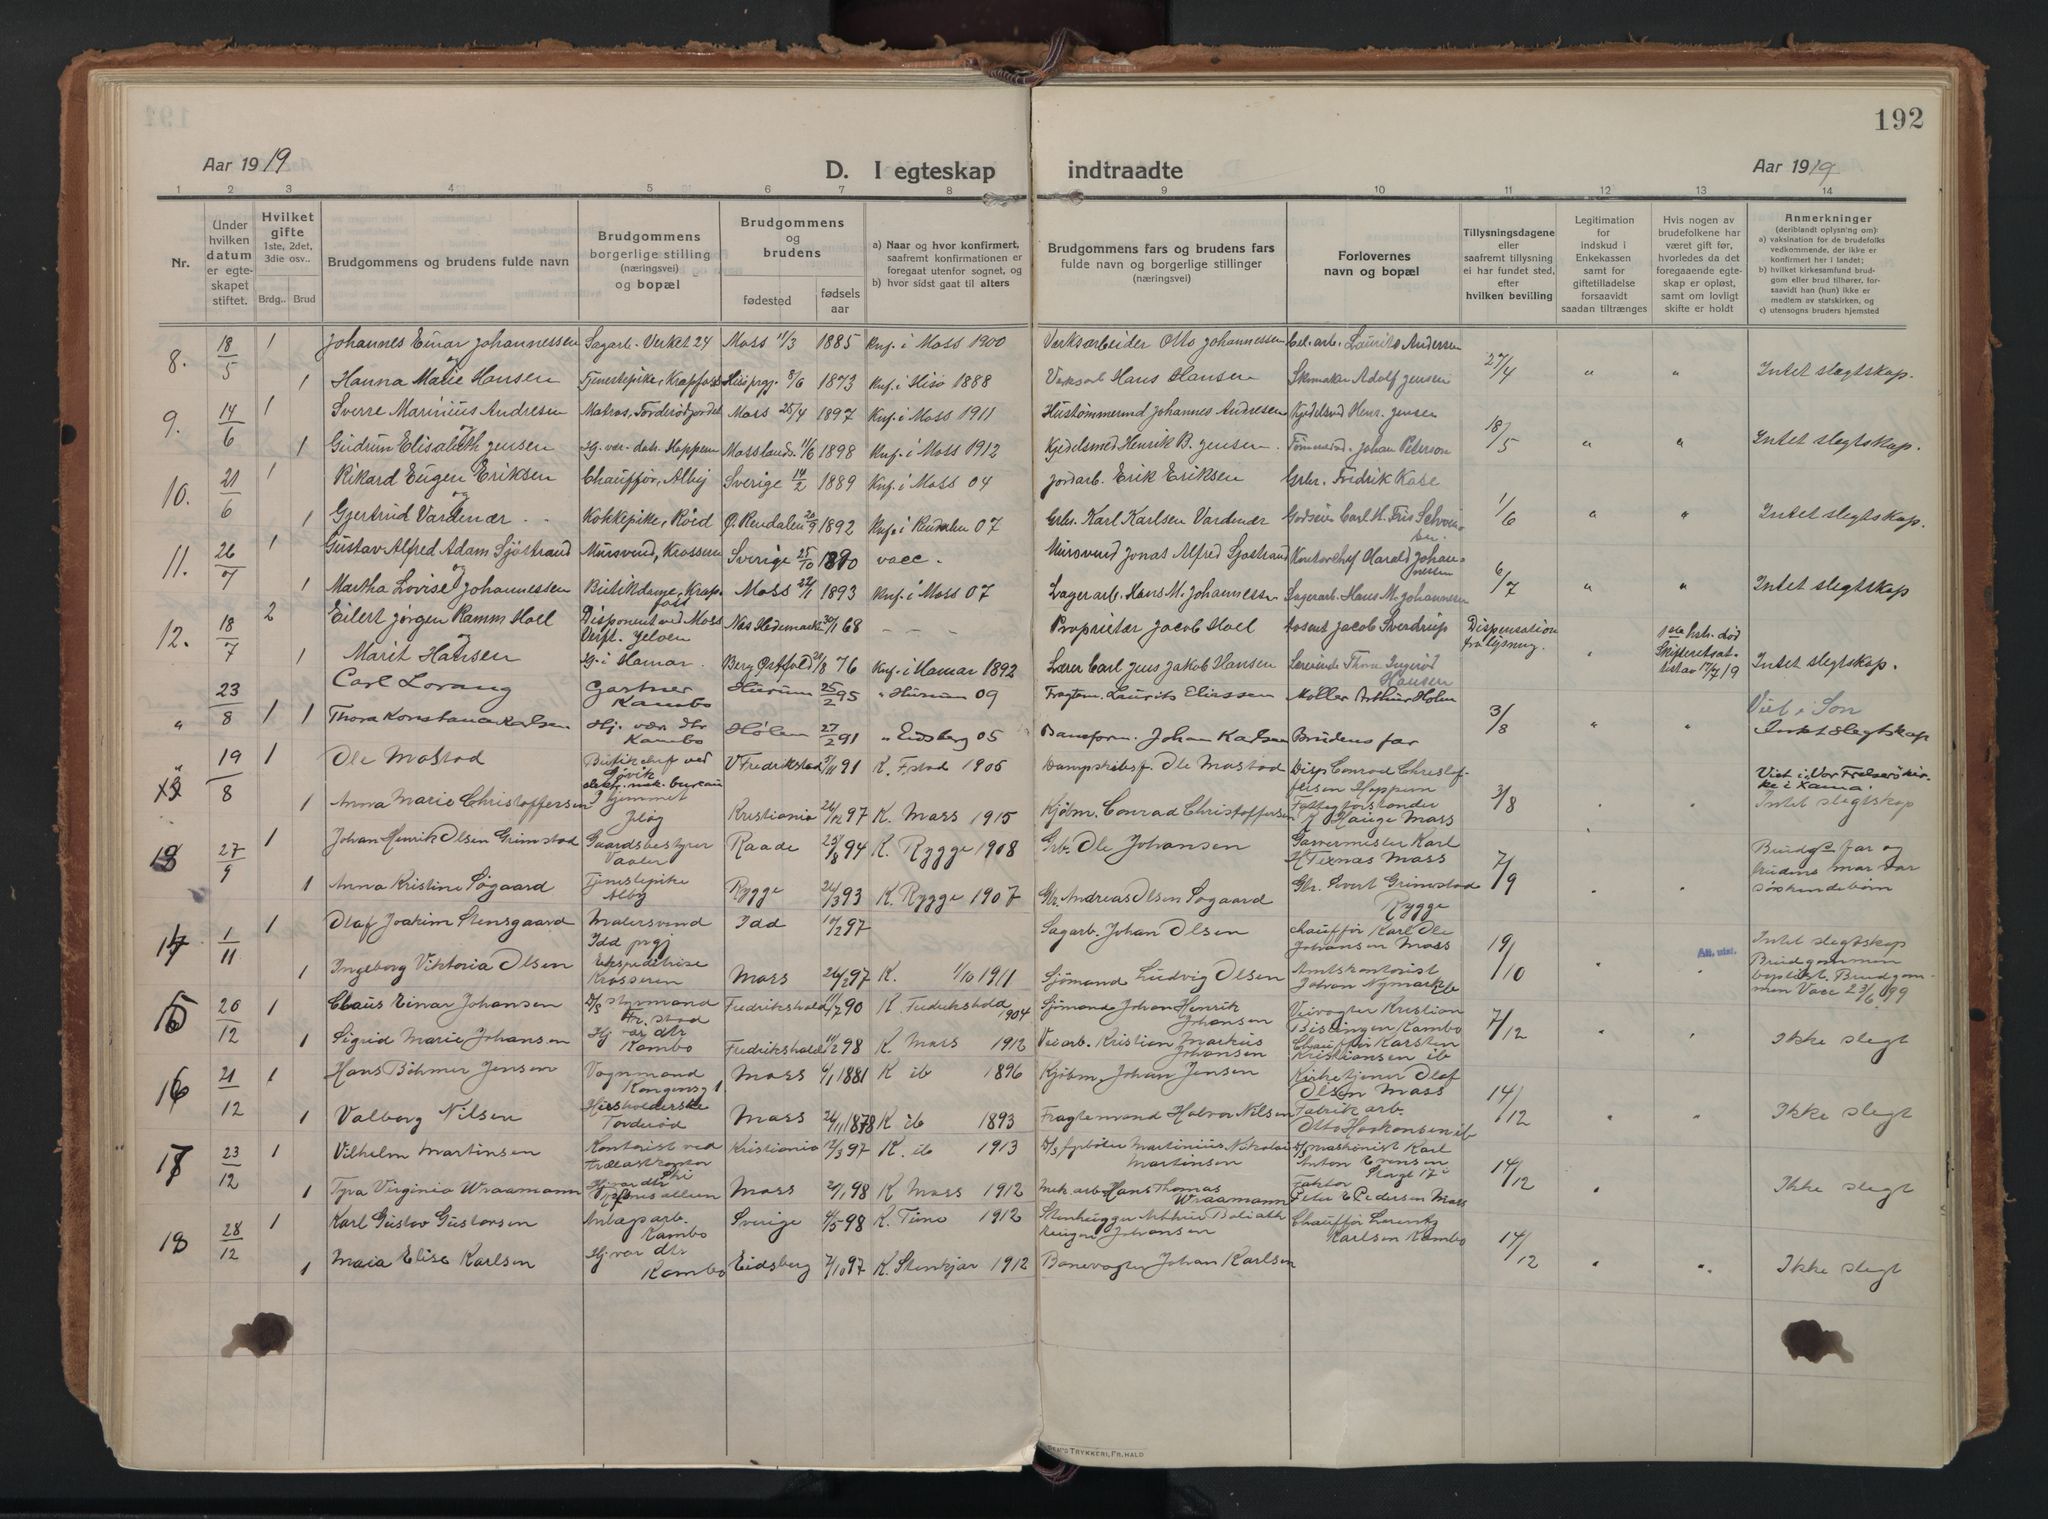 192
Aar 1919
D. I egteskap indtraadte
Aar 1919
1 2 3 4 5 6 7 8 9 10 11 12 13 14
Nr.
Under hvilken datum er egteskapet stiftet.
Hvilket gifte 1ste, 2det, 3die osv..
Brdg.. Brud
Brudgommens og brudens fulde navn
Brudgommens borgerlige stilling (næringsvei) og bopæl
Brudgommens og brudens
fødested
fødsels aar
a) Naar og hvor konfirmert, saafremt konfirmationen er foregaat utenfor sognet, og
b) hvor sidst gaat til alters
Brudgommens fars og brudens fars fulde navn og borgerlige stillinger (næringsvei)
Forlovernes navn og bopæl
Tillysningsdagene eller saafremt tillysning ei har fundet sted, efter hvilken bevilling
Legitimation for indskud i Enkekassen samt for giftetilladelse forsaavidt saadan tiltrænges
Hvis nogen av brudefolkene har været gift før, hvorledes da det foregaaende egteskap er opløst, samt om lovlig skifte er holdt
Anmerkninger (deriblandt oplysn'ng om):
a) vaksination for de brudefolks vedkommende, der ikke er konfirmert her i landet;
b) hvilket kirkesamfund brudgom eller brud tilhører, forsaavidt han (hun) ikke er medlem av statskirken, og
c) utensogns bruders hjemsted
8. 18/5 1 Johannes Einar Johannessen Sagarb. Verket 24 Moss 11/3 1885 Knf. i Moss 1900 Verksarbeider Otto Johannessen Cel.arb. Laurits Andersen
og
1 Hanna Marie Hansen Tjenestepike, Krapfoss Hisø prgj. 8/6 1873 Knf. i Hisø 1888 Verksarb Hans Hansen Skomaker Adolf Jensen 27/4 " " Intet slegtskap.
9. 14/6 1 Sverre Marinius Andresen Matros, Torderødjordet Moss 25/4 1897 Knf. i Moss 1911 Hustømmermd Johannes Andresen Kjedelsmd Henr. Jensen
og
1 Gudrun Elisabeth Jensen Hj. vær. datr. Heppen Mosslands. 11/6 1898 Knf. i Moss 1912 Kjedelsmed Henrik B. Jensen. Tømmermd. Johan Peterson 18/5 " " Intet slegtskap.
10. 21/6 1 Rikard Eugen Eriksen Chauffør, Alby Sverige 14/2 1889 Knf. i Moss 04 Jordarb. Erik Eriksen Grbr. Fredrik Kase
og
1 Gjertrud Vardenær Kokkepike, Røed Ø. Rendalen 20/9 1892 Knf. i Rendalen 07 Grbr. Karl Karlsen Vardenær Godseier Carl H. Fris 1/6 " " Intet slegtskap.
11. 26/7 1 Gustav Alfred Adam Sjøstrand Mursvend, Krossern Sverige 25/10 vacc. Mursvend Jonas Alfred Sjøstrand Kontorchef Harald Johannessen
og
1 Martha Lovise Johannessen Butikdame, Krapfoss Moss 1893 Knf. i Moss 07 Lagerarb. Hans M. Johannessen Lagerarb. Hans M. Johannesen 6/7 " " Intet slegtskap
12. 18/7 2 Eilert Jørgen Ramm Hoel Disponent ved Moss Verft. Jeløen Nes Hedemarken 30/1 68 - - - Proprietær Jacob Hoel Jacob Sverdrup Dispensation fra lysning.
og
1 Marit Hansen Hj. i Hamar. Berg Østfold 76 Knf. i Hamar 1892 Lærer Carl Jens Jakob Hansen Lærerinde Thora Ingerød Hansen " 1ste hstr. død Skifteretsattest av 17/7 19 Intet slegtskap.
" 23/8 1 Carl Lorang Gartner Kambo Hurum 25/2 95 " Hurum 09 Fragtem. Laurits Eliessen Møller Arthur Holm
1 Thora Konstanse Karlsen Hj. vær. dtr Kambo Hølen 27/2 91 " Eidsberg 05 Baneform. Johan Karlsen Brudens far 3/8 " " Viet i Son Intet slegtskap
13 19/8 1 Ole Mostad Butikchef ved Gjøvik elektr. mek. bureau V Fredrikstad 5/11 91 K. F.stad 1905 Dampskibsf. Ole Mostad Disp Conrad Christoffersen Heppen
1 Anna Marie Christoffersen I hjemmet Jeløy Kristiania 26/12 97 K. Moss 1915 Kjøbm. Conrad Christoffersen Fattigforstander K Hauge Moss 3/8 Viet i Vor Frelsers kirke i Xania. Intet slegtskap
27/9 1 Johan Henrik Olsen Grimstad Gaardsbestyrer Vaaler Raade 25/8 94 K. Rygge 1908 Grb. Ole Johansen Garvermester Karl H Texnas Moss
1 Anna Kristine Søgaard Tjenestepike Alby Rygge 26/3 93 K. Rygge 1907 Gbr. Andreas Olsen Søgaard Gbr. Sivert Grimstad Rygge 7/9 Brudg. far og brudens mor var søskendebørn
14 1/11 1 Olaf Joakim Stensgaard Malersvend Idd prgj Idd 10/2 97 Sagarb. Johan Olsen Chauffør Karl Ole Johansen Moss
1 Ingeborg Viktoria Olsen Ekspeditrise Krosseren Moss 26/2 97 K. 1/10 1911 Sjømand Ludvig Olsen Amtskontorist Johan Nymark ib 19/10 Intet slegtskap Brudgommen baptist. Brudgommen Vacc 23/6 99
15 20/12 1 Claus Einar Johansen D/S styrmand Fr.stad Fredrikshald 11/7 90 K. Fredrikshald 1904 Sjømand Johan Henrik Johansen Veivogter Kristian Bislingen Kambo
1 Sigrid Marie Johansen Hj. vær dtr Kambo Fredrikshald 11/2 98 K. Moss 1912 Veiarb. Kristian Markus Johansen Chauffør Karsten Kristiansen ib 7/12 Ikke slegt
16 21/12 1 Hans Böhmer Jensen Vognmand Kongensg 1 Moss 6/1 1881 K ib 1896 Kjøbm. Johan Jensen Kirketjener Olaf Olsen Moss
1 Valborg Nilsen Husholderske Torderød Moss 26/11 1878 K ib 1893 Fragtemand Halvor Nilsen Fabrikarb. Otto Haakonsen ib 14/12 Ikke slegt
17 23/12 1 Vilhelm Martinsen Kontorist ved trælastkontor Ski Kristiania 12/3 97 K. ib 1913 D/S fyrbøter Martinius Nikolai Martinsen D/S maskinist Karl Anton Evensen
1 Tyra Virginia Wraamann Hj. vær dtr Moss 21/1 98 K Moss 1912 Mek arb. Hans Thomas Wraamann Faktor Peter E Pedersen Moss 14/12 Ikke slegt
18 28/12 1 Karl Gustav Gustavsen Anlægsarb. Kambo Sverige 4/5 98 K. Tune 1912 Stenhugger Johansen Chauffør Lorentz Karlsen Kambo
1 Maia Elise Karlsen Hj. vær dtr Kambo Eidsberg 7/10 97 K. Stenkjær 1912 Banevogter Johan Karlsen 14/12 Ikke slegt
TRYKKERI, FR.HALD